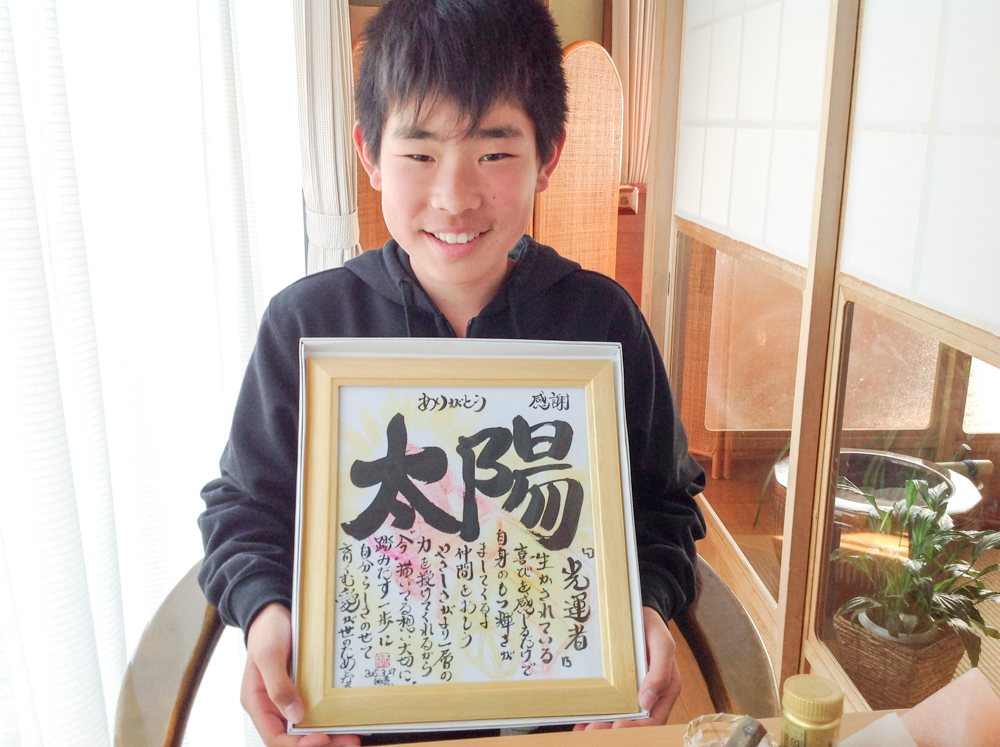 ありがとう 感謝
太陽
『光運者』
生かされている
喜びを感じるけど
自身のもつ輝きが
ましてくるよ
仲間をおもう
やさしさがより一層の
力を授けてくれるから
"今"描いてる想い大切に
踏みだす一歩に
自分らしさのせて
育くむ愛が世のため